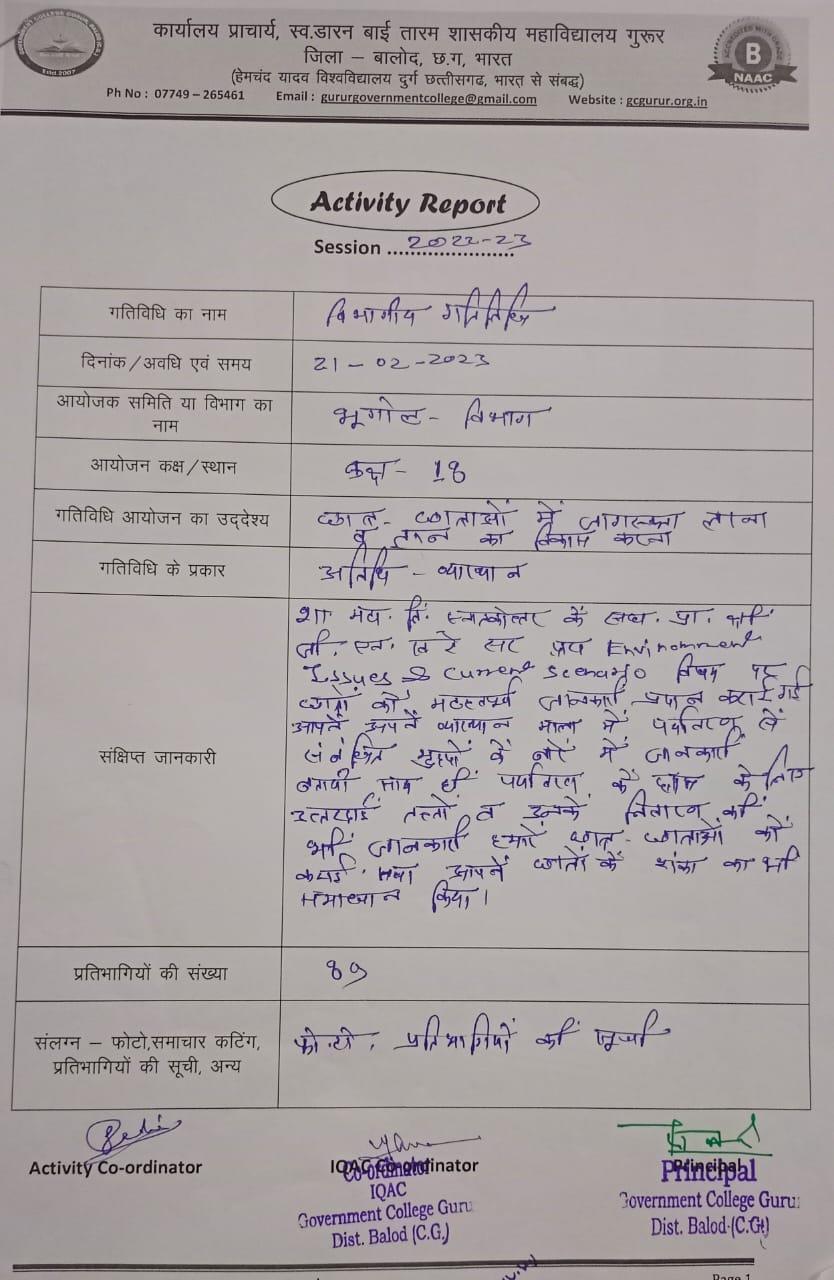 कार्यालय प्राचार्य, स्व.डारन बाई तारम शासकीय महाविद्यालय गुरूर
जिला – बालोद, छ.ग, भारत
(हेमचंद यादव विश्वविद्यालय दुर्ग छत्तीसगढ, भारत से संबद्ध)
Ph No : 07749 – 265461 Email : gururgovernmentcollege@gmail.com Website : gcgurur.org.in
Estd.2007
B
NAAC
Activity Report
Session 2022-23
गतिविधि का नाम विभागीय गतिविधि
दिनांक/अवधि एवं समय 21-02-2023
आयोजक समिति या विभाग का
नाम
भूगोल - विभाग
आयोजन कक्ष/स्थान कक्ष - 18
गतिविधि आयोजन का उद्देश्य
छात्र - छात्राओं में जागरूकता लाना
व ज्ञान का विकास करना
गतिविधि के प्रकार अतिथि - व्याख्यान
संक्षिप्त जानकारी
शा. स्नातकोत्तर के सहा. प्रा. श्री
जी. एन. खरे सर Environment
Issues & current scenario विषय पर
छात्रों को महत्वपूर्ण जानकारी प्रदान कराई गई
आपने अपने व्याख्यान माला में पर्यावरण से
संबंधित के बारे में जानकारी
साथ ही पर्यावरण के के लिए
उत्तरदाई तत्वों व उनके निवारण की
भी जानकारी हमारे छात्र - छात्राओं को
कराई तथा आपने छात्रों के शंका का भी
समाधान किया।
प्रतिभागियों की संख्या 89
संलग्न – फोटो,समाचार कटिंग,
प्रतिभागियों की सूची, अन्य
फोटो, प्रतिभागियों की सूची
Activity Co-ordinator IQAC Co-ordinator Principal
Co-ordinator
IQAC
Government College Guru
Dist. Balod (C.G.)
Principal
Government College Guru
Dist. Balod (C.G.)
Page 1